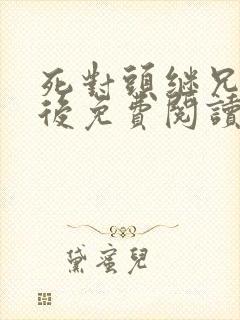 死對頭繼兄
後免費閱讀
黛蜜兒